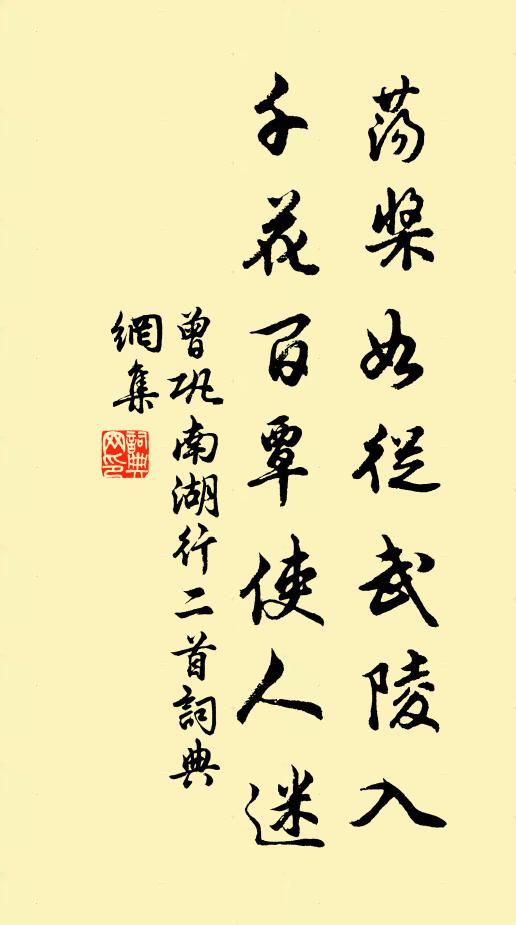 荡槳如從武陵入
千花百草使人迷
曾巩南湖行二首詞典
網集
詞典
网印